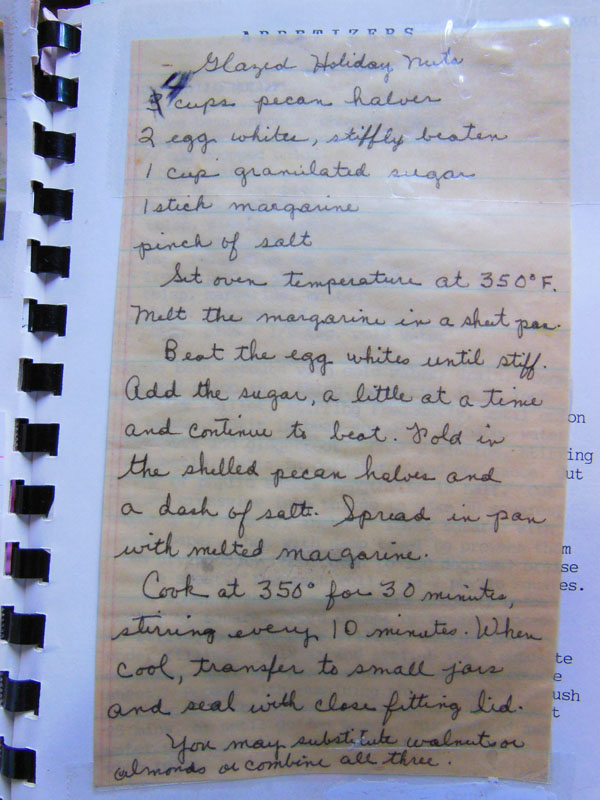 APPETIZERS
Glazed Holiday Nuts
4 cups pecan halves
2 egg whites, stiffly beaten
1 cup granulated sugar
1 stick margarine
pinch of salt
Set oven temperature at 350° F.
Melt the margarine in a sheet pan.
Beat the egg whites until stiff.
Add the sugar, a little at a time
and continue to beat. Fold in
the shelled pecan halves and
a dash of salt. Spread in pan
with melted margarine.
Cook at 350° for 30 minutes,
stirring every 10 minutes. When
cool, transfer to small jars
and seal with close fitting lid.
You may substitute walnuts or
almonds or combine all three.